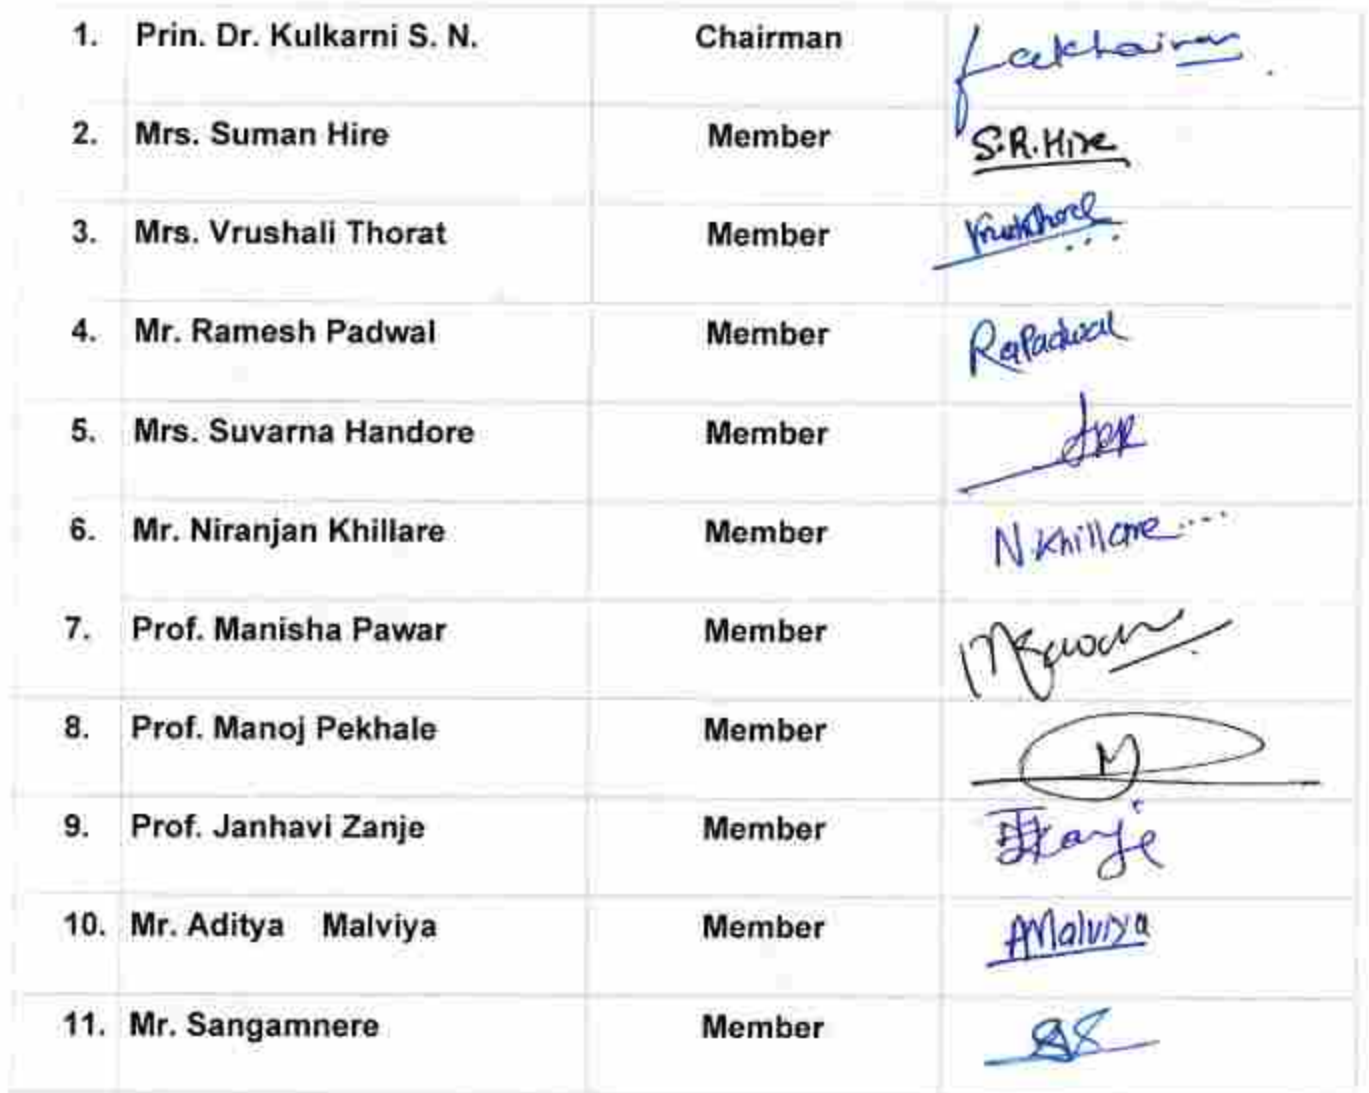 1. Prin. Dr. Kulkarni S. N. Chairman
2. Mrs. Suman Hire Member S.R.Hire
3. Mrs. Vrushali Thorat Member
4. Mr. Ramesh Padwal Member RaPadwal
5. Mrs. Suvarna Handore Member
6. Mr. Niranjan Khillare Member N.Khillare....
7. Prof. Manisha Pawar Member
8. Prof. Manoj Pekhale Member M
9. Prof. Janhavi Zanje Member
10. Mr. Aditya Malviya Member AMalviya
11. Mr. Sangamnere Member